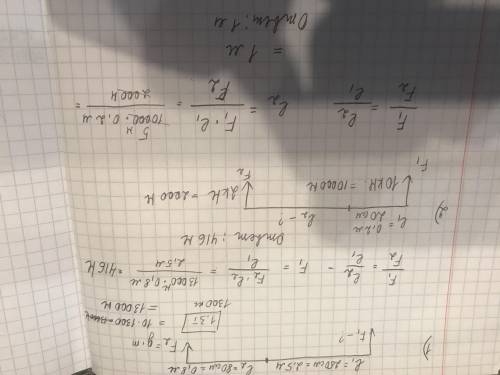 1)
l₁ = 250 см = 2,5 м  l₂ = 80 см = 0,8 м
F₁ - ?  F₂ = g·m
1.3т = 10·1300
1300 кг = 13000 Н
F₁/F₂ = l₂/l₁ - F₁ = F₂·l₂/l₁ = 13000Н·0,8 м/2,5 м = 416 Н
Ответ: 416 Н
2)
l₁ = 0,2 м  l₂ - ?
20 см
10 кН = 10000 Н  2кН = 2000 Н
F₁  F₂
F₁/F₂ = l₂/l₁  l₂ = F₁·l₁/F₂ = 10000 Н·0,2 м/2000 Н =
= 1 м
Ответ: 1 м